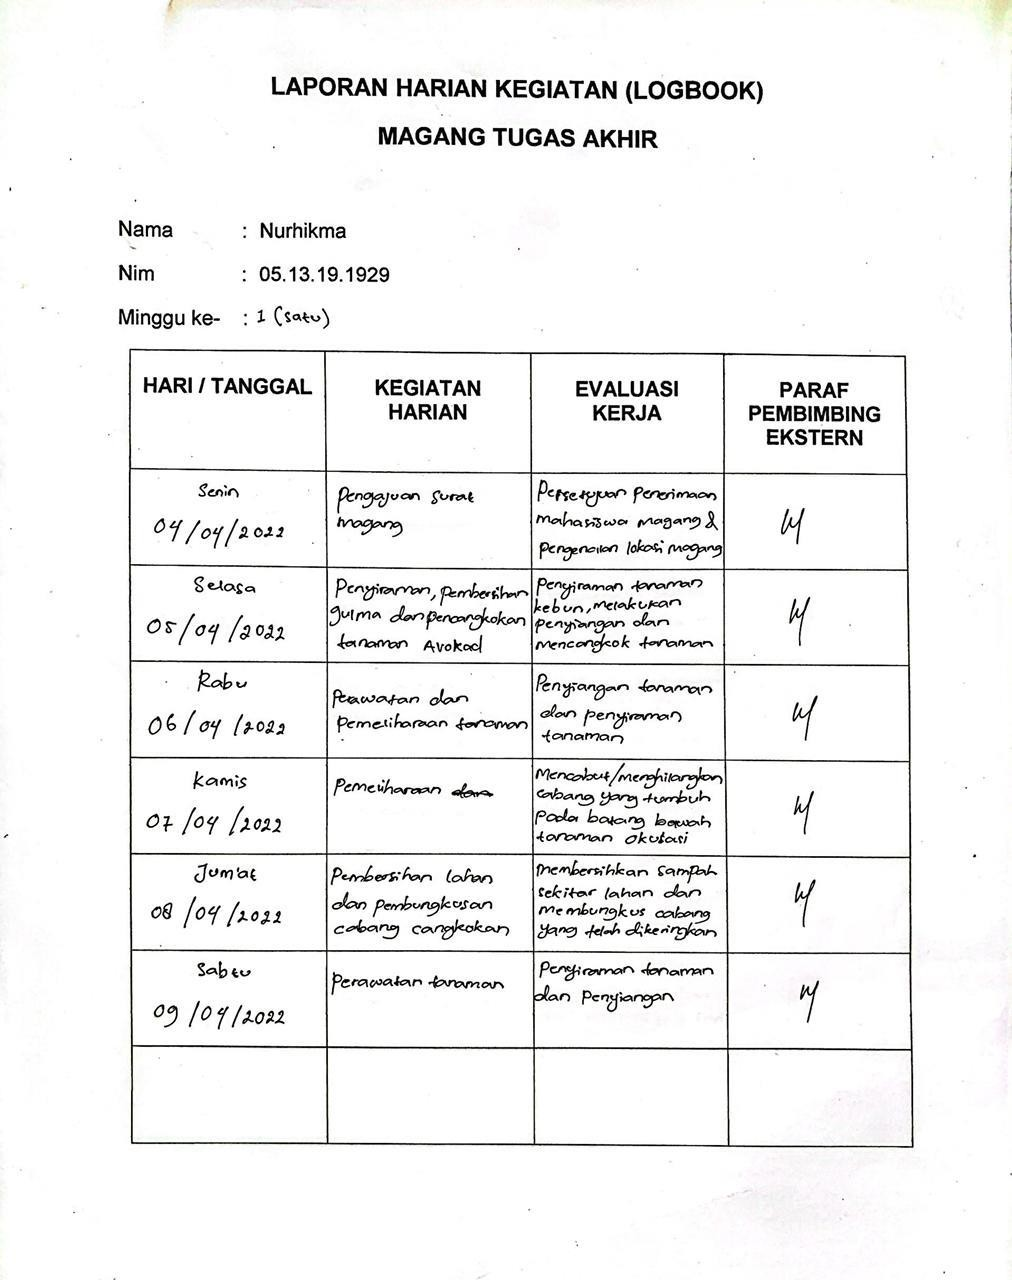 LAPORAN HARIAN KEGIATAN (LOGBOOK)
MAGANG TUGAS AKHIR
Nama : Nurhikma
Nim : 05.13.19.1929
Minggu ke- : 1 (satu)
HARI / TANGGAL
KEGIATAN
HARIAN
EVALUASI
KERJA
PARAF
PEMBIMBING
EKSTERN
Senin
04/04/2022
Pengajuan surat
magang
Persetujuan Penerimaan
mahasiswa magang &
pengenalan lokasi magang
Selasa
05/04/2022
Penyiraman, pembersihan
gulma dan pencangkokan
tanaman Avokad
Penyiraman tanaman
kebun, melakukan
penyiangan dan
mencangkok tanaman
Rabu
06/04/2022
Perawatan dan
Pemeliharaan tanaman
Penyiangan tanaman
dan penyiraman
tanaman
Kamis
07/04/2022
Pemeliharaan dan
Mencabut/menghilangkan
cabang yang tumbuh
pada batang bawah
tanaman okulasi
Jum'at
08/04/2022
Pembersihan lahan
dan pembungkusan
cabang cangkokan
membersihkan sampah
sekitar lahan dan
membungkus cabang
yang telah dikeringkan
Sabtu
09/04/2022
Perawatan tanaman
Penyiraman tanaman
dan Penyiangan